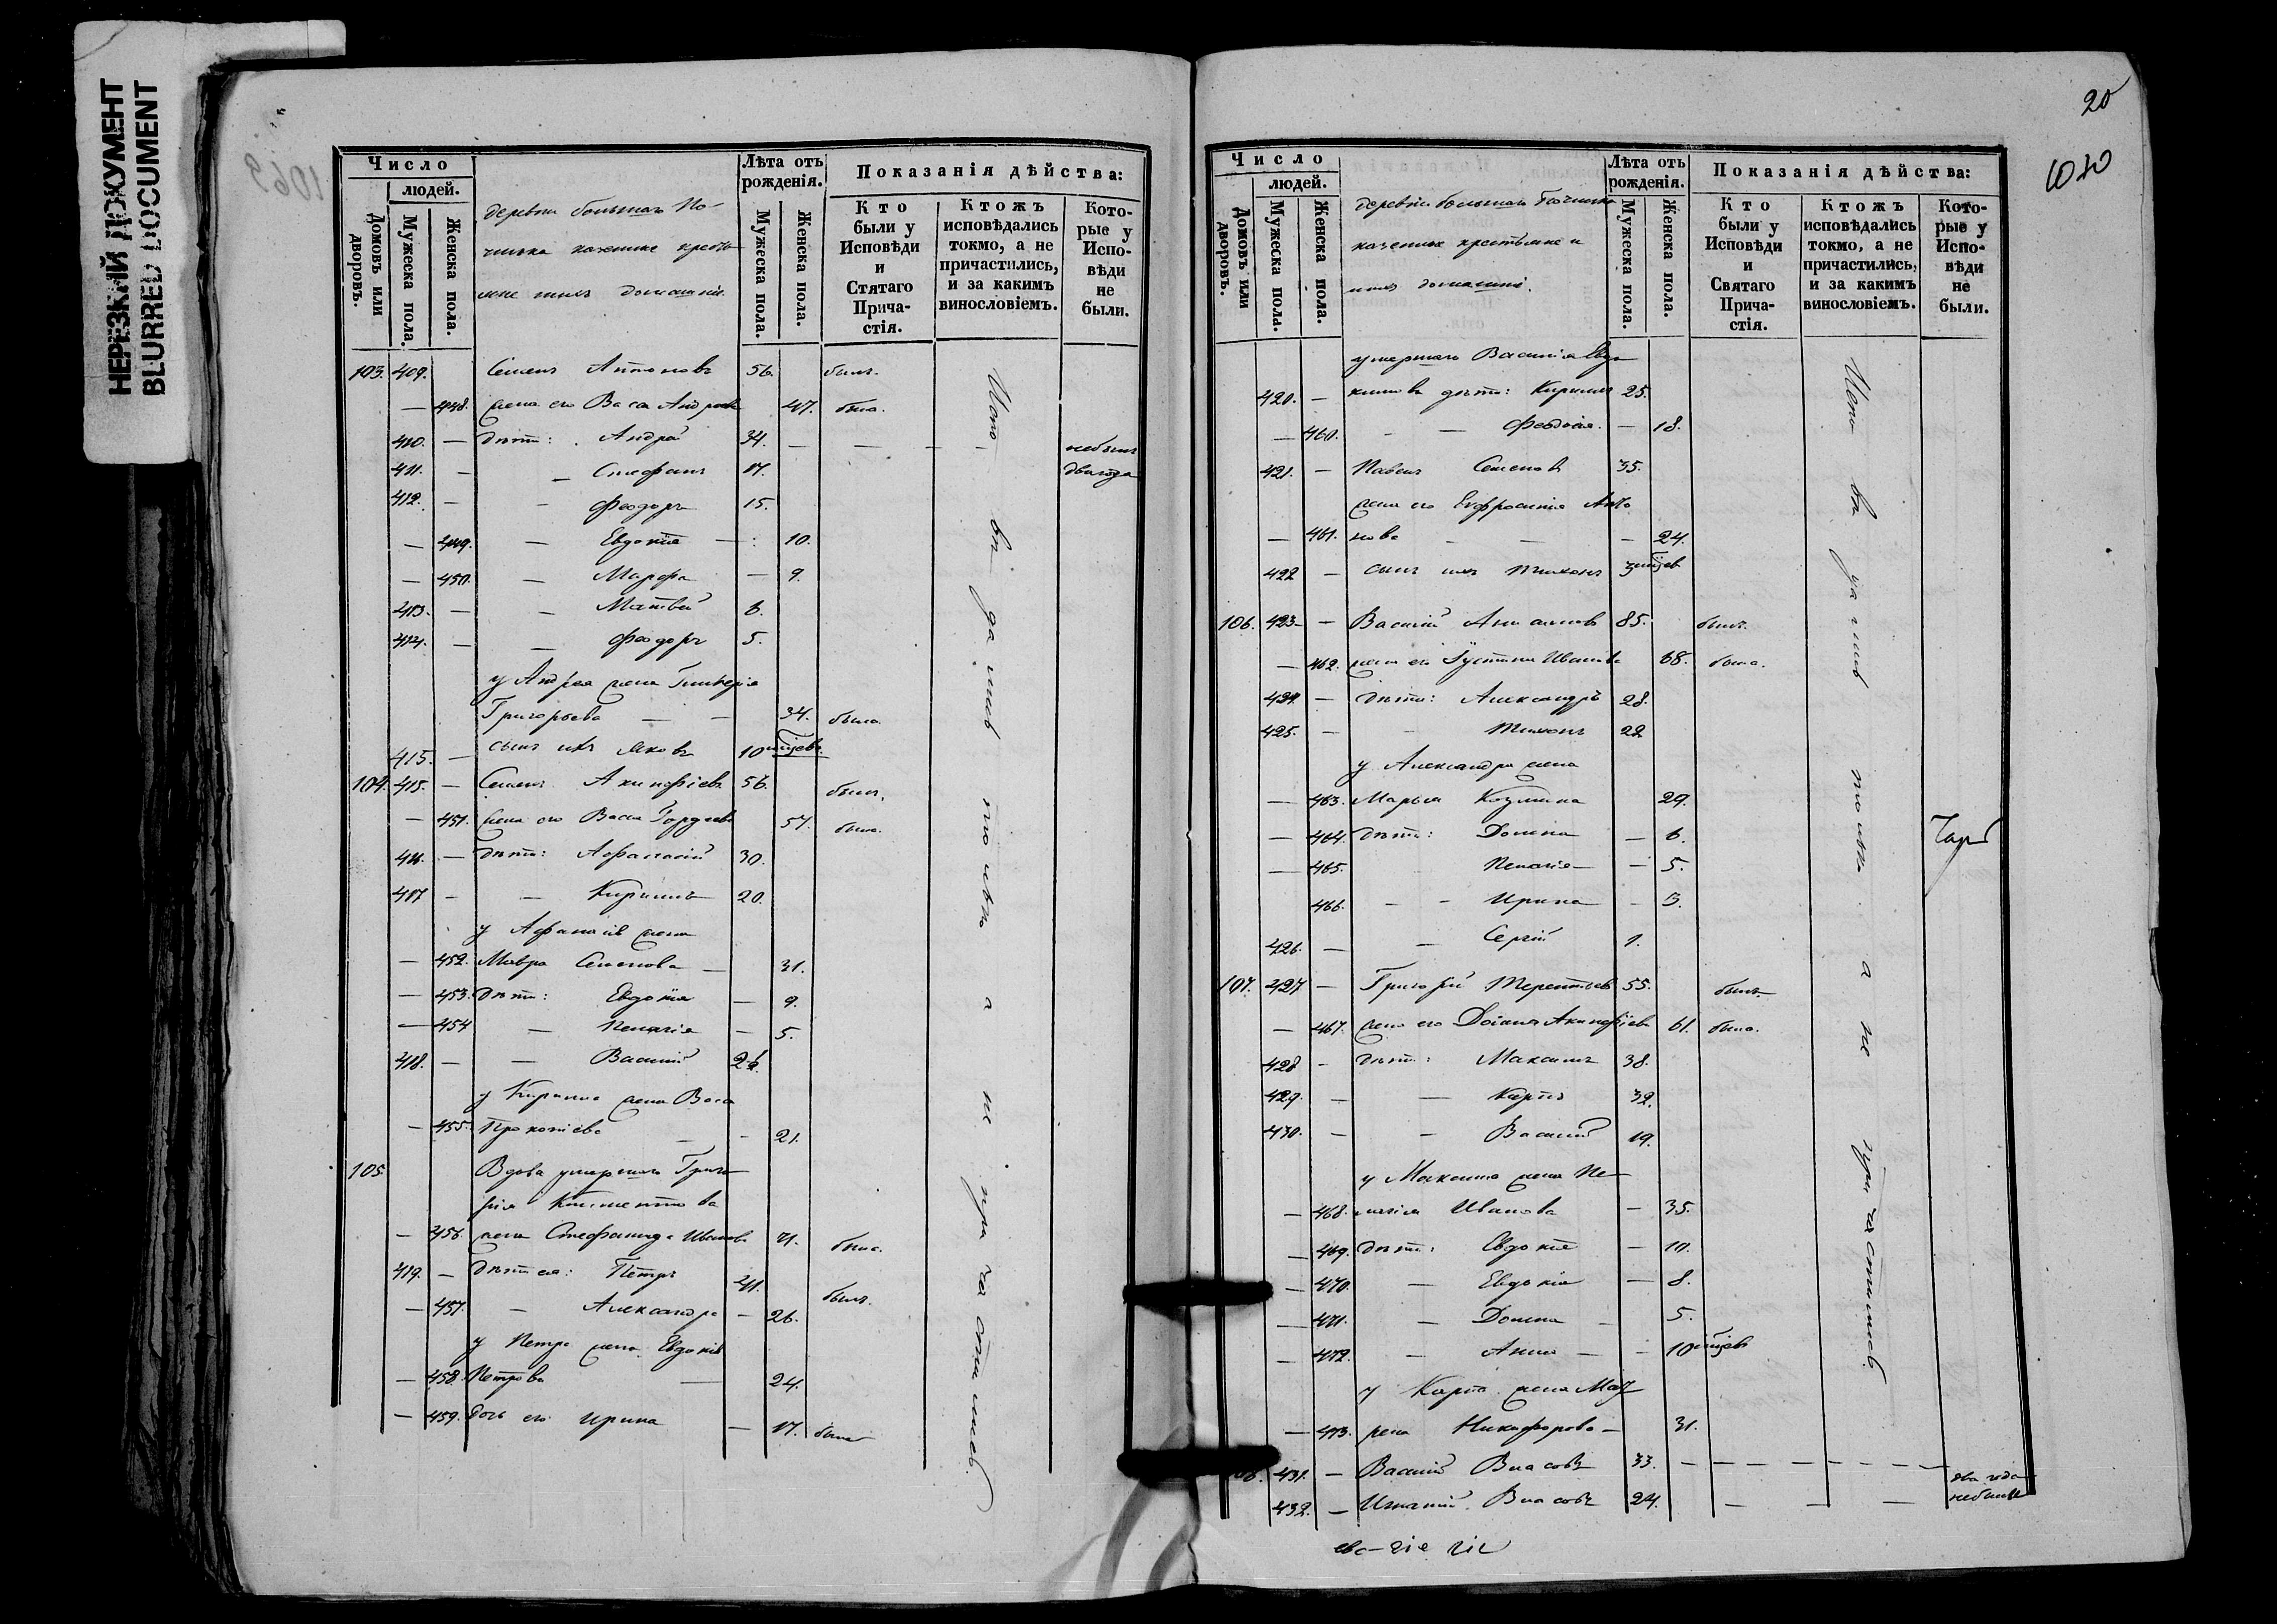 НЕРЕЗКИЙ ДОКУМЕНТ
BLURRED DOCUMENT
1069
Число
людей.
Домовъ или дворовъ.
Мужеска пола.
Женска пола.
деревни большаго По-
чинка казенные кресть-
яне ихъ домашніе.
Лѣта отъ рожденія.
Мужеска пола.
Женска пола.
Показанія дѣйства:
Кто были у Исповѣди и Стятаго Прича-стія.
Ктожъ исповѣдались токмо, а не причастились, и за какимъ винословіемъ.
Кото-рые у Испо-вѣди не были.
103. 409. Семенъ Антоновъ 56. былъ.
— 448. жена его Васа Андреева 47. была.
410. — дѣти: Андрей 34. — — — — небылъ
411. — — Стефанъ 17. два года
412. — — Феодоръ 15.
— 449. — Евдокія — 10.
— 450. — Марфа — 9.
413. — — Матвей 6.
414. — — Феодоръ 5.
у Андрея жена Гликерія
Григорьева — — 34. была.
415. — сынъ ихъ Яковъ 10 мѣсяцевъ.
104. 415. — Семенъ Акинфіевъ 56. былъ.
— 451. жена его Васса Гордеева 57. была.
416. — дѣти: Афанасій 30.
417 — — Кирилъ 20.
у Афанасія жена
— 452. Мавра Семенова — 31.
— 453. дѣти: Евдокія — 9.
— 454 — Пелагія — 5.
418. — — Василій
у Кирилла жена Васа
— 455. Прокопіева — — 21.
105. Вдова умершаго Григо-
рія Климентова
— 456. жена Стефанида Иванова 71. была.
419. — дѣти ея: Петръ 41. былъ.
— 457. — Александра — 26.
у Петра жена Евдокія
— 458. Петрова — 24.
— 459. дочь его Ирина — 17. была
Испо- вѣдались только а не причастились.
20
Число
людей.
Домовъ или дворовъ.
Мужеска пола.
Женска пола.
деревни большаго Починка
казенные крестьяне и
ихъ домашніе.
Лѣта отъ рожденія.
Мужеска пола.
Женска пола.
Показанія дѣйства:
Кто были у Исповѣди и Святаго Прича-стія.
Ктожъ исповѣдались токмо, а не причастились, и за какимъ винословіемъ.
Кото-рые у Испо-вѣди не были.
умершаго Василія Евдо-
420. — кимова дѣти: Кирилъ 25.
— 460. — — Феодосія. — 18.
421. — Павелъ Семеновъ 35.
жена его Евфросинія Анто-
— 461. нова — — — 24.
422 — сынъ ихъ Тихонъ 3 мѣсяцев.
106. 423 — Василій 85. былъ.
— 462. жена его Іустина Иванова 68. была.
424. — дѣти: Александръ 28.
425. — — Тихонъ 22
у Александра жена
— 463. Марья Козмина 29.
— 464. дѣти: Домна — 6.
— 465. Пелагія — 5.
466. — — Ирина — 3.
426. — — Сергій 1.
107. 427 — Григорій Терентьевъ 55. былъ.
— 467. жена его Акинфіева 61. была.
428 — дѣти: Максимъ 38.
429. — — Карпъ 32.
430. — — Василій 19.
у Максима жена Пе-
— 468. лагія Иванова — 35.
— 469. дѣти: Евдокія — 10.
— 470. — Евдокія — 8.
— 471. — Домна — 5.
— 472. — Анна — — 10 мѣсяцевъ
у Карпа жена Мав-
— 473. рена Никифорова — 31.
431. — Василій Власовъ 33. — — — — — — — два года
432. — Игнатій Власовъ 24. — — — небыли
Испо- вѣдались только а не причастились